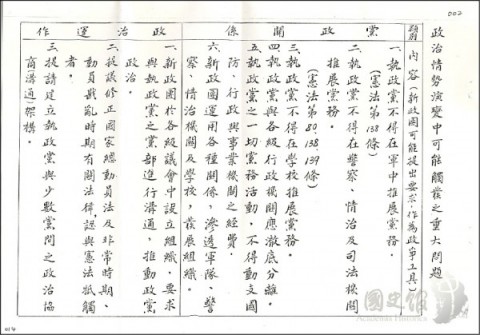 002
政治情勢演變中可能觸發之重大問題
類別
內容(新政團可能提出要求,作為政爭工具)
黨政關係
一、執政黨不得在軍中推展黨務。
(憲法第138條)
二、執政黨不得在警察、情治及司法機關
推展黨務。
(憲法第80、138、139條)
三、執政黨不得在學校推展黨務。
四、執政黨與各級行政機關應澈底分離。
五、執政黨之一切黨務活動,不得動支國
防、行政與事業機關之經費。
六、新政團運用各種關係,滲透軍隊、警
察、情治機關及學校,發展組織。
政治運作
一、新政團於各級議會中設立組織,要求
與執政黨之黨部進行溝通,推動政黨
政治。
二、提議修正國家總動員法及非常時期、
動員戡亂時期有關法律,認與憲法抵觸
者。
三、提請建立執政黨與少數黨間之政治協
商(溝通)架構。
國史館
Academia Historica